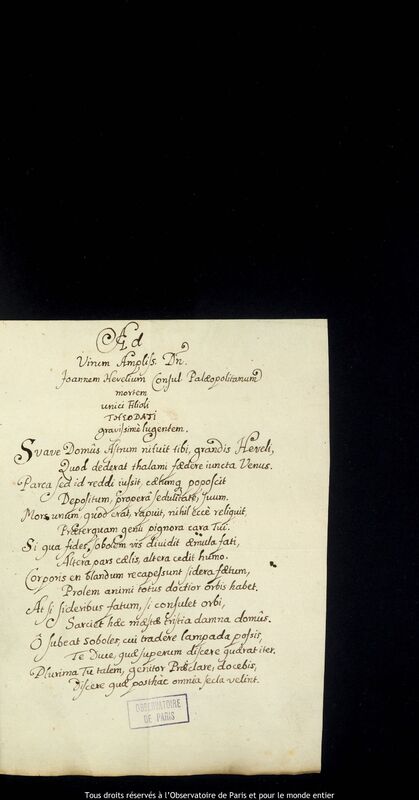 Ad
Virum Ampliss. Dn.
Joannem Hevelium Consul Palæopolitanum
mortem
unici Filioli
THEODATI
gravissimè lugentem.
Suave Domûs Astrum nituit tibi, grandis Heveli,
Quod dederat thalami fœdere iuncta Venus.
Parca sed id reddi iussit, cœlumq poposcit
Depositum, properâ sedulitate, suum.
Mors unum, quod erat, rapuit, nihil ecce reliquit,
Præterquam genii pignora cara Tui.
Si qua fides, sobolem vis dividit æmula fati,
Altera pars cælis, altera cedit humo.
Corporis en blandum recapessunt sidera fœtum,
Prolem animi totus doctior orbis habet.
At si sideribus fatum, si consulet orbi,
Sarciet hæc mæstæ tristia damna domûs.
Ô subeat soboles, cui tradere lampada possis,
Te Duce, quæ superum discere quærat iter.
Plurima Tu talem, genitor Præclare, docebis,
Discere quæ posthàc omnia secla velint.
OBSERVATOIRE
DE PARIS
Tous droits réservés à l'Observatoire de Paris et pour le monde entier